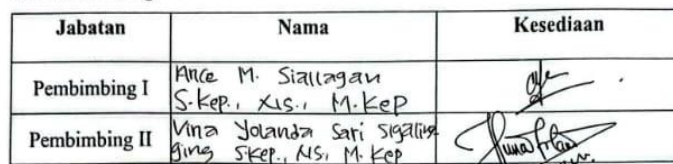 Jabatan Nama Kesediaan
Pembimbing I Ance M. Siallagan
S.Kep., Ns., M.Kep
Pembimbing II Vina Yolanda Sari Sigaling
ging S.Kep., Ns, M.Kep